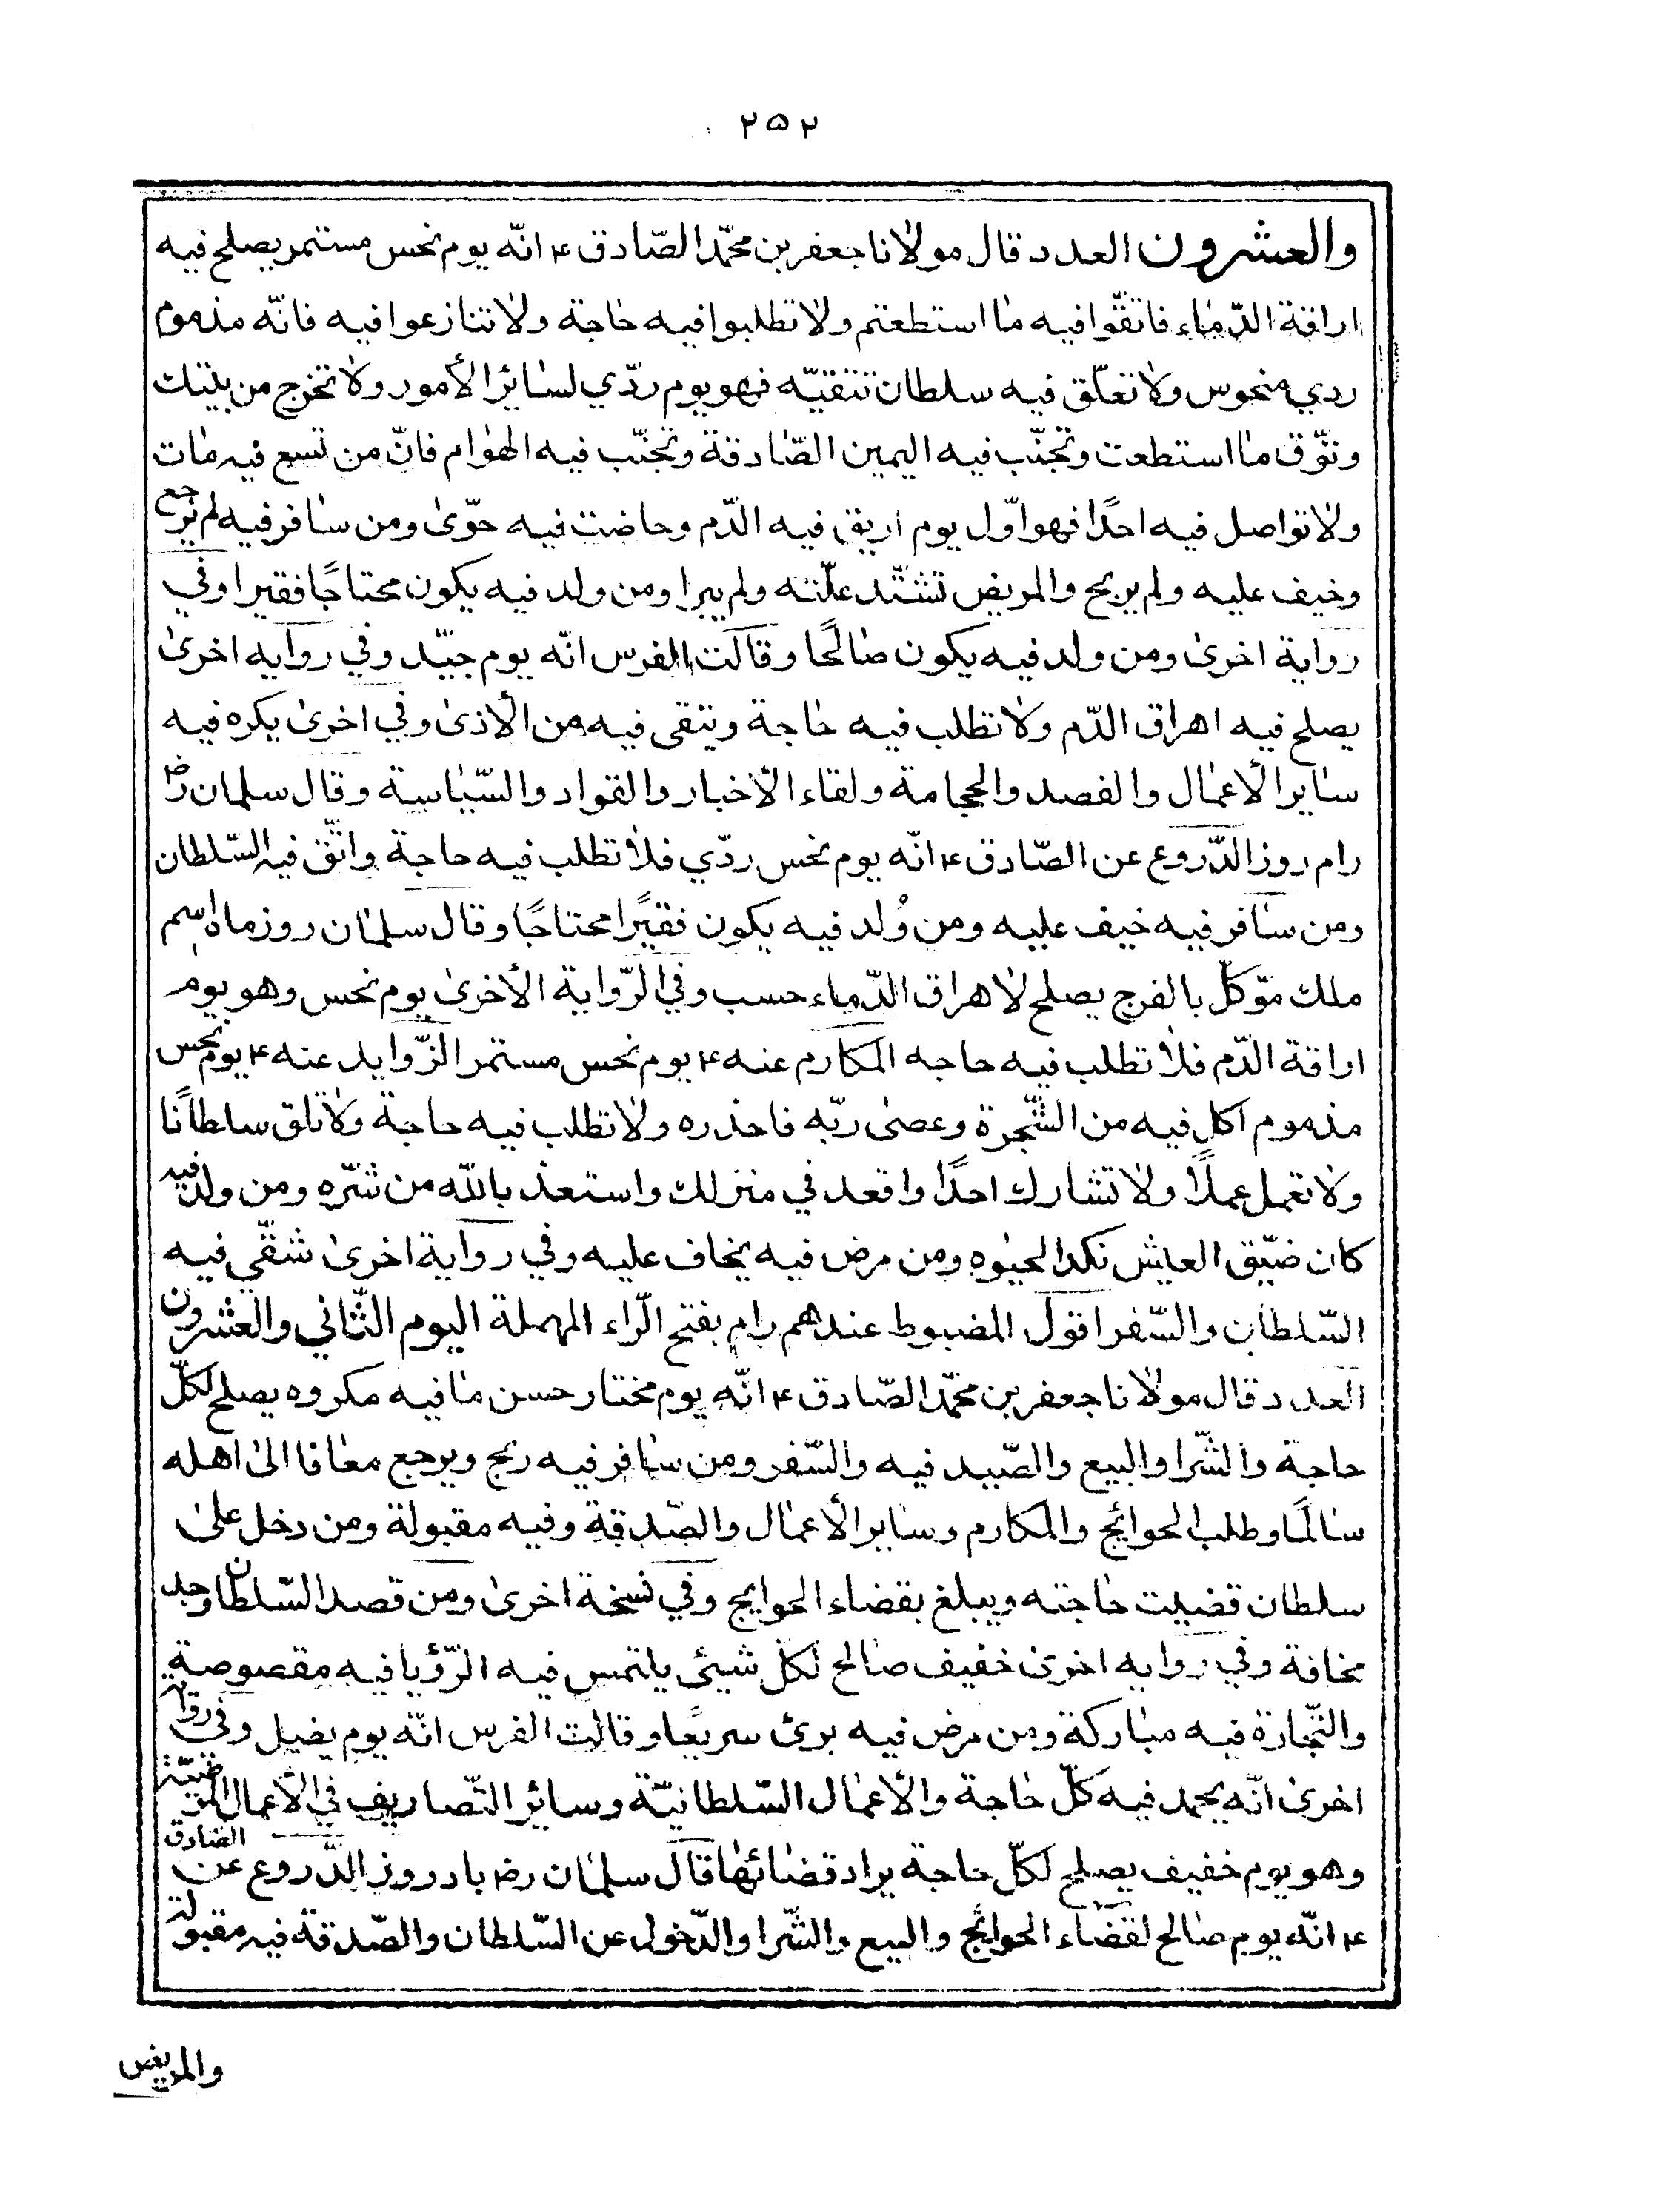 ٢٥٢
والعشرون العدد قال مولانا جعفر بن محمّد الصّادق ٤ انّه يوم نحس مستمر يصلح فيه
اراقة الدّماء فاتقّوا فيه ما استطعتم ولا تطلبوا فيه حاجة ولا تنازعوا فيه فانّه مذموم
ردي منحوس ولا تعلّق فيه سلطان تتقيّه فهو يوم ردّي لسائر الأمور ولا تخرج من بيتك
وتوّق ما استطعت وتجنّب فيه اليمين الصّادقة وتجنّب فيه الهوام فانّ من تسع فيه مات
ولا تواصل فيه احدًا فهو اوّل يوم اريق فيه الدّم وحاضت فيه حوّى ومن سافر فيه لم يرجع
وخيف عليه ولم يربح والمريض تشتّد علّته ولم يبرا ومن ولد فيه يكون محتاجًا فقيرا وفي
رواية اخرى ومن ولد فيه يكون صالحًا وقالت الفرس انّه يوم جيّد وفي روايه اخرى
يصلح فيه اهراق الدّم ولا تطلب فيه حاجة ويتقى فيه من الأذى وفي اخرى يكره فيه
ساير الأعمال والفصد والحجامة ولقاء الأخبار والقواد والسّياسة وقال سلمان رض
رام روز الدّروع عن الصّادق ٤ انّه يوم نحس ردّي فلا تطلب فيه حاجة واتّق فيه السّلطان
ومن سافر فيه خيف عليه ومن وُلد فيه يكون فقيًرا محتاجًا وقال سلمان روز ماه اسم
ملك موّكلّ بالفرج يصلح لاهراق الدّماء حسب وفي الرّواية الأخرى يوم نحس وهو يوم
اراقة الدّم فلا تطلب فيه حاجه المكارم عنه ٤ يوم نحس مستمر الزّوايد عنه ٤ يوم نحس
مذموم اكل فيه من الشّجرة وعصى ربّه فاحذره ولا تطلب فيه حاجة ولا تلق سلطانًا
ولا تعمل عملًا ولا تشارك احدًا واقعد في منزلك واستعذ بالله من شرّه ومن ولد فيه
كان ضيّق العايش نكد الحيوه ومن مرض فيه يخاف عليه وفي رواية اخرى شقّي فيه
السّلطان والسّفر اقول المضبوط عندهم رام بفتح الّراء المهملة اليوم الثّاني والعشرون
العدد قال مولانا جعفر بن محمّد الصّادق ٤ انّه يوم مختار حسن ما فيه مكروه يصلح لكلّ
حاجة والشّرا والبيع والصّيد فيه والسّفر ومن سافر فيه ربح ويرجع معافا الى اهله
سالمًا وطلب الحوائج والمكارم وساير الأعمال والصّدقة وفيه مقبولة ومن دخل على
سلطان قضيت حاجته ويبلغ بقضاء الحوايج وفي نسخة اخرى ومن قصد السّلطان وجد
مخافة وفي روايه اخرى خفيف صالح لكلّ شيئ يلتمس فيه الرّؤيا فيه مقصوصة
والتّجارة فيه مباركة ومن مرض فيه برئ سريعًا وقالت الفرس انّه يوم يضيل وفي رواية
اخرى انّه يحمد فيه كلّ حاجة والأعمال السّلطانيّة وسائر التّصاريف في الأعمال المرضّية
وهو يوم خفيف يصلح لكلّ حاجة يراد قضائها قال سلمان رض باد روز الدّروع عن الصّادق
٤ انّه يوم صالح لقضاء الحوائج والبيع والشّرا والدّخول عن السّلطان والصّدقة فيه مقبولة
والمريض